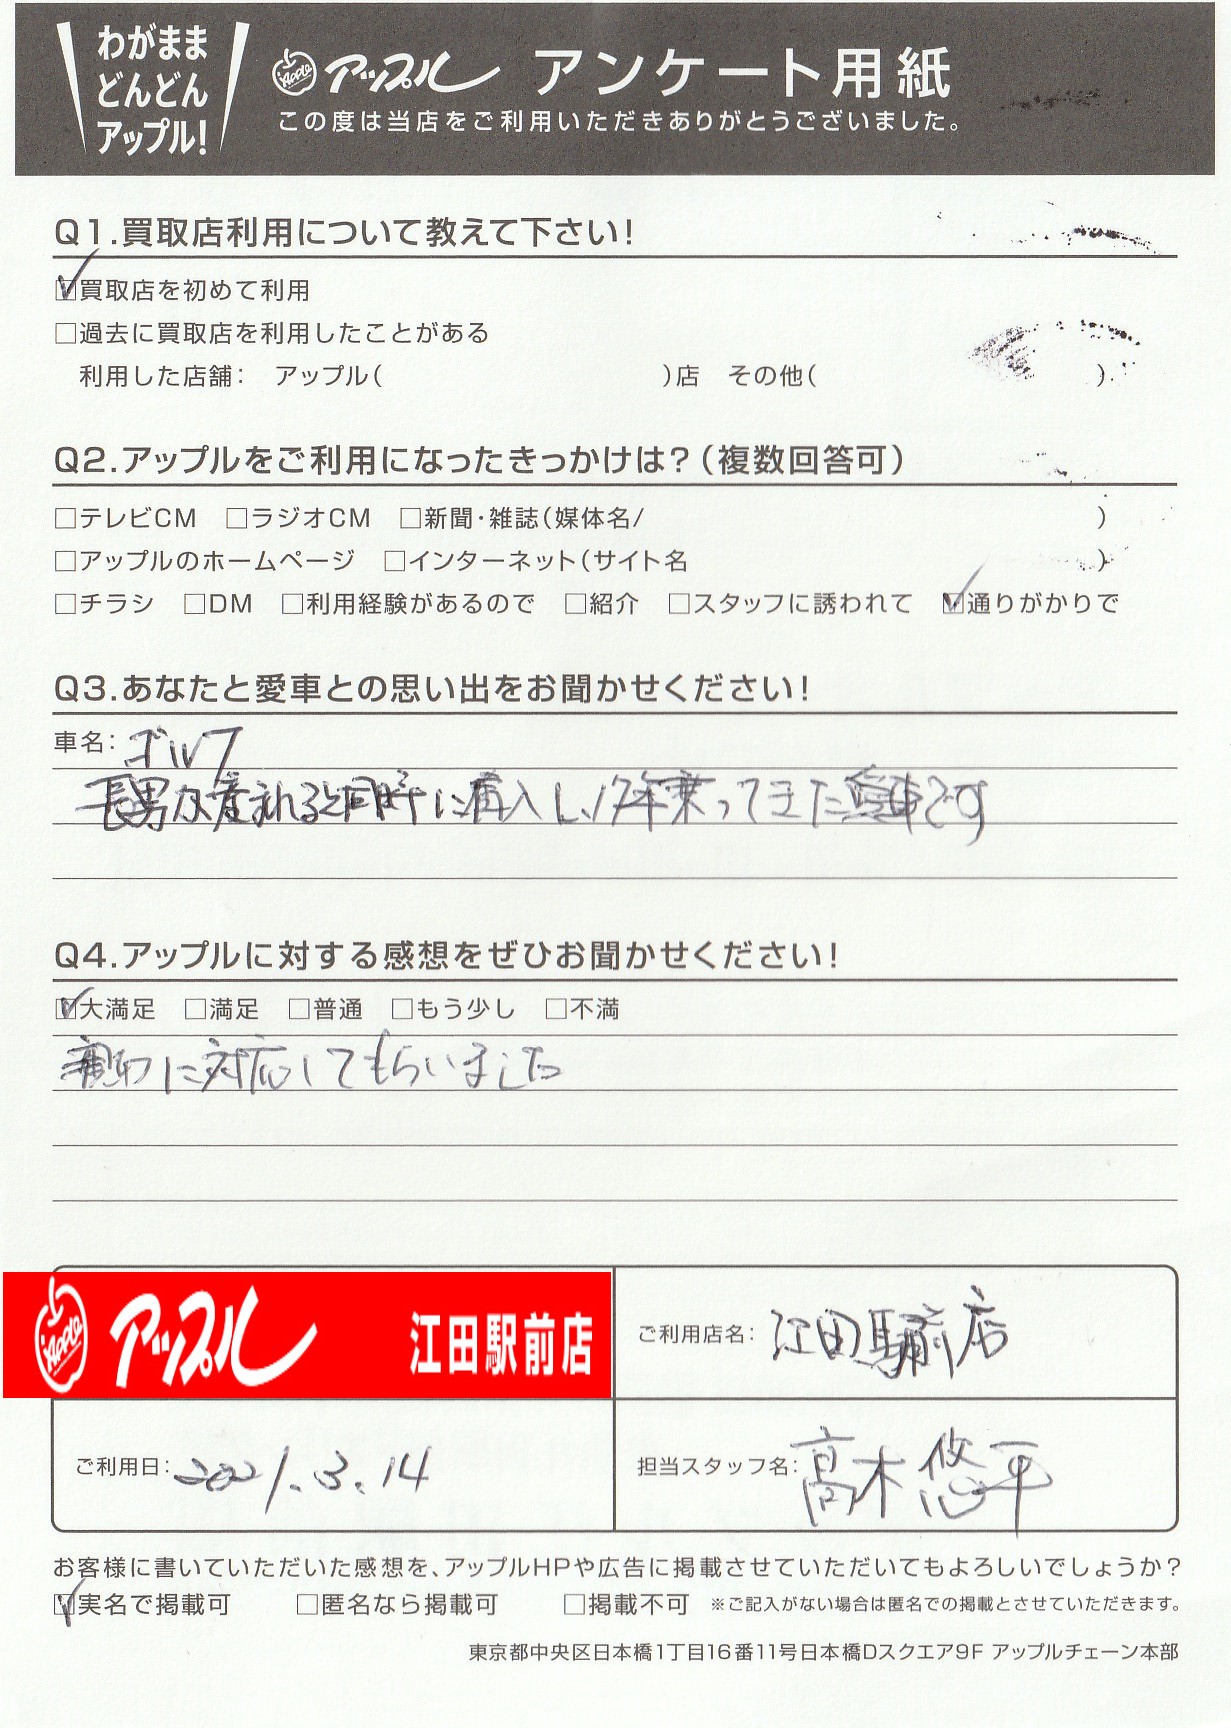 わがまま
どんどん
アップル!
Apple アップル アンケート用紙
この度は当店をご利用いただきありがとうございました。
Q1.買取店利用について教えて下さい!
☑買取店を初めて利用
□過去に買取店を利用したことがある
利用した店舗: アップル( )店 その他( )
Q2.アップルをご利用になったきっかけは?(複数回答可)
□テレビCM □ラジオCM □新聞・雑誌(媒体名/ )
□アップルのホームページ □インターネット(サイト名 )
□チラシ □DM □利用経験があるので □紹介 □スタッフに誘われて ☑通りがかりで
Q3.あなたと愛車との思い出をお聞かせください!
車名: ゴルフ
長男が産まれると同時に購入し、17年乗ってきた愛車です
Q4.アップルに対する感想をぜひお聞かせください!
☑大満足 □満足 □普通 □もう少し □不満
親切に対応してもらいました
Apple アップル 江田駅前店
ご利用店名: 江田駅前店
ご利用日: 2021.3.14
担当スタッフ名: 高木悠平
お客様に書いていただいた感想を、アップルHPや広告に掲載させていただいてもよろしいでしょうか?
☑実名で掲載可 □匿名なら掲載可 □掲載不可 ※ご記入がない場合は匿名での掲載とさせていただきます。
東京都中央区日本橋1丁目16番11号日本橋Dスクエア9F アップルチェーン本部